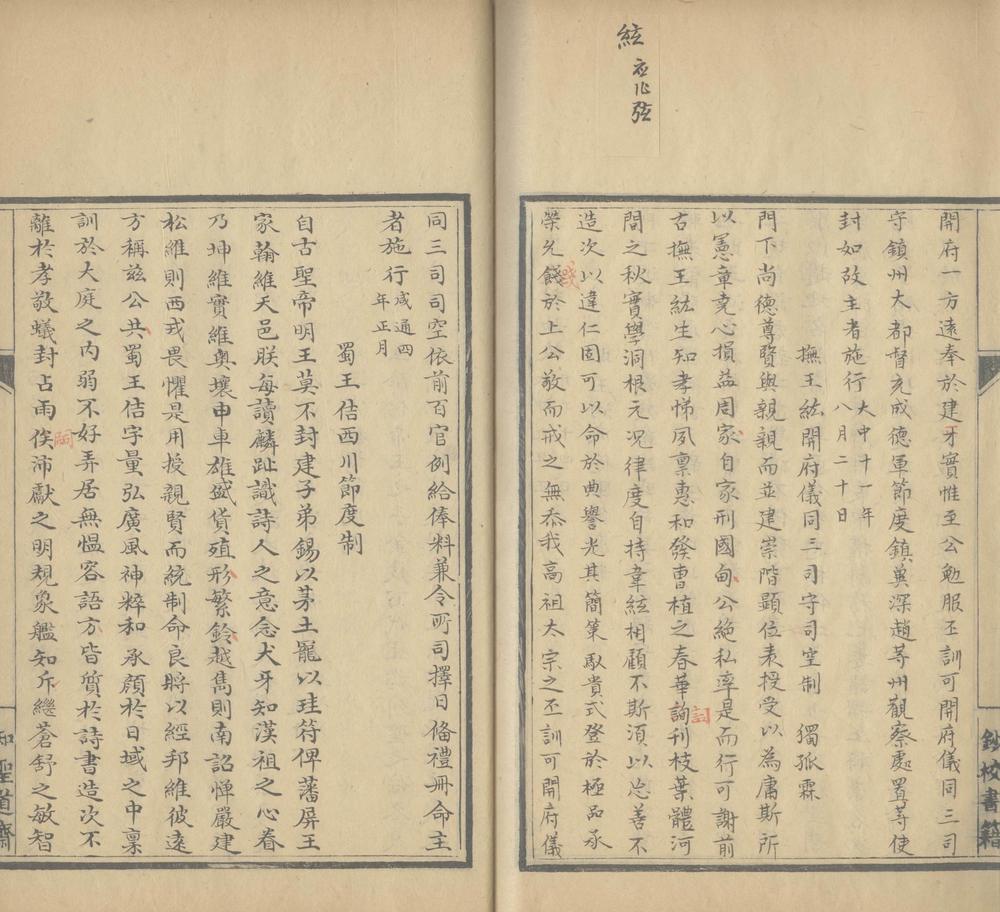 絃應作弦
開府一方遠奉於建牙實惟至公勉服丕訓可開府儀同三司
守鎮州大都督充成德軍節度鎮冀深趙等州觀察處置等使
封如故主者施行大中十一年八月二十日
撫王紘開府儀同三司守司空制 獨孤霖
門下尚德尊賢與親親而並建崇階顯位表授受以為庸斯所
以憲章堯心損益周家自家刑國甸公絶私率是而行可謝前
古撫王紘生知孝悌夙禀惠和發曹植之春華詢刊枝葉體河
間之秋實學洞根元况律度自持韋絃相顧不斯須以忘善不
造次以違仁固可以命於典譽光其簡策馭貴式登於極品承
榮允餞於上公敬而戒之無忝我高祖太宗之丕訓可開府儀
鈔校書籍
同三司司空依前百官例給俸料兼令所司擇日備禮冊命主
者施行咸通四年正月
蜀王佶西川節度制
自古聖帝明王莫不封建子弟錫以茅土寵以珪符俾藩屏王
家翰維天邑朕每讀麟趾識詩人之意念犬牙知漢祖之心眷
乃坤維實維奥壤申車雄盛貨殖形繁鈴越雋則南詔憚嚴建
松維則西戎畏懼是用授親賢而統制命良將以經邦維彼遠
方稱兹公共蜀王佶字量弘廣風神粹和承顔於日域之中禀
訓於大庭之内弱不好弄居無愠容語方皆質於詩書造次不
離於孝敬蟻封占雨俟沛獻之明規象艦知斥繼蒼舒之敏智
知聖道齋